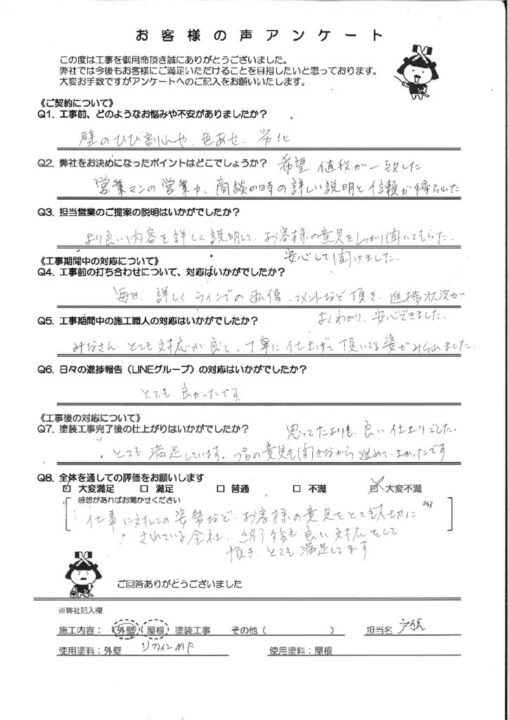 お客様の声アンケート
この度は工事を御用命頂き誠にありがとうございました。
弊社では今後もお客様にご満足いただけることを目指したいと思っております。
大変お手数ですがアンケートへのご記入をお願いいたします。
《ご契約について》
Q1. 工事前、どのようなお悩みや不安がありましたか?
壁のひび割れや、色あせ、劣化
Q2. 弊社をお決めになったポイントはどこでしょうか?
希望 値段が一致した
営業マンの営業力、商談の時の詳しい説明と信頼が得られた
Q3. 担当営業のご提案の説明はいかがでしたか?
より良い内容を詳しく説明して、お客様の意見をしっかり聞いてもらた。
安心して聞けました。
《工事期間中の対応について》
Q4. 工事前の打ち合わせについて、対応はいかがでしたか?
毎日、詳しくラインでの画像、コメントなど頂き、進捗状況が
よくわかり、安心できました。
Q5. 工事期間中の施工職人の対応はいかがでしたか?
みなさん、とても対応が良く、丁寧に仕上げて頂いてる姿がみられました
Q6. 日々の進捗報告(LINEグループ)の対応はいかがでしたか?
とても良かったです
《工事後の対応について》
Q7. 塗装工事完了後の仕上がりはいかがでしたか?
思ってたよりも、良い仕上りでした。
とても満足しています。プロの意見も聞きながら進めてよかったです
Q8. 全体を通しての評価をお願いします
大変満足 □ 満足 □ 普通 □ 不満 大変不満
感想があればお聞かせください
仕事に対しての姿勢など、お客様の意見をとても大切に
されている会社、終了後も良い対応をして
頂き、とても満足してます
ご回答ありがとうございました
※弊社記入欄
施工内容: 外壁 / 屋根 塗装工事 その他( ) 担当名
使用塗料:外壁 リファインMF 使用塗料:屋根